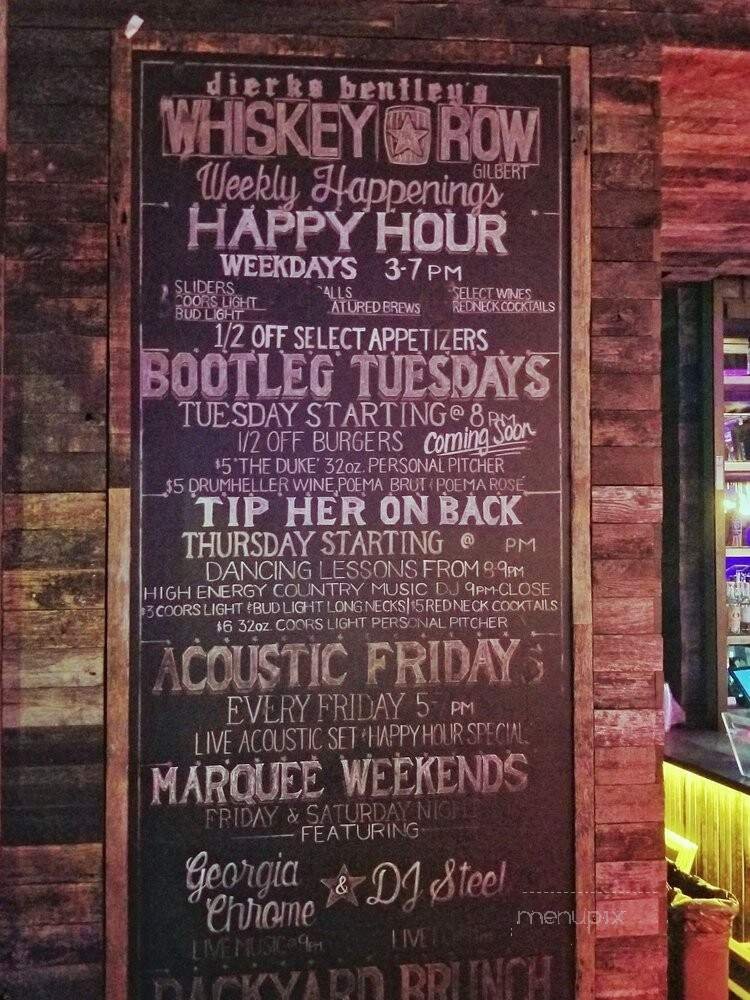 dierks bentley's
WHISKEY ROW
GILBERT
Weekly Happenings
HAPPY HOUR
WEEKDAYS 3-7 PM
SLIDERS ALLS SELECT WINES
COORS LIGHT ATURED BREWS REDNECK COCKTAILS
BUD LIGHT
1/2 OFF SELECT APPETIZERS
BOOTLEG TUESDAYS
TUESDAY STARTING @ 8 PM
1/2 OFF BURGERS Coming Soon
$5 "THE DUKE" 32oz. PERSONAL PITCHER
$5 DRUMHELLER WINE, POEMA BRUT, POEMA ROSE
TIP HER ON BACK
THURSDAY STARTING @ PM
DANCING LESSONS FROM 8-9PM
HIGH ENERGY COUNTRY MUSIC DJ 9PM-CLOSE
$3 COORS LIGHT & BUD LIGHT LONG NECKS | $5 RED NECK COCKTAILS
$6 32oz. COORS LIGHT PERSONAL PITCHER
ACOUSTIC FRIDAYS
EVERY FRIDAY 5-7 PM
LIVE ACOUSTIC SET & HAPPY HOUR SPECIAL
MARQUEE WEEKENDS
FRIDAY & SATURDAY NIGH
FEATURING
Georgia Chrome & DJ Steel
LIVE MUSIC @ 9PM LIVE
BACKYARD BRUNCH
menupix